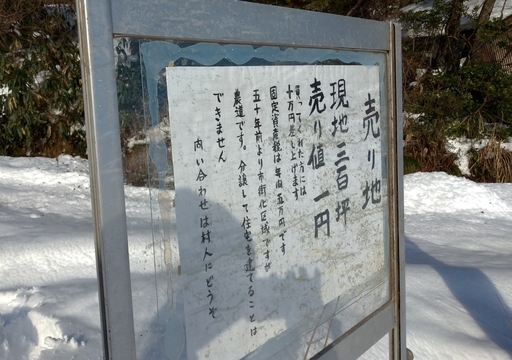 売り地
現地 三百坪
売り値 一円
買ってくれた方には
十万円差し上げます
固定資産税は年間五万円です
五十年前より市街化区域ですが
農道です。分譲して住宅を建てることは
できません
問い合わせは村人にどうぞ